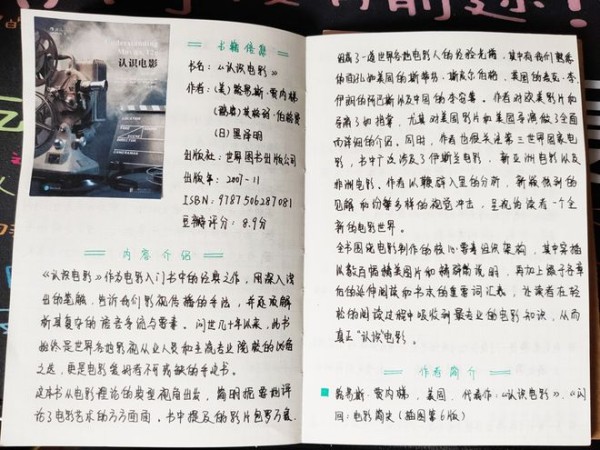 的前途!
Understanding
Movies, 11e
认识电影
LOCATION
DIRECTOR
CAMERAMAN
书籍信息
书名:《认识电影》
作者:(美)路易斯·贾内梯
(日)黑泽明
出版社:世界图书出版公司
出版年:2007-11
ISBN:9787506287081
豆瓣评分:8.9分
内容介绍
《认识电影》作为电影入门书中的经典之作,用深入浅
出的笔触,告诉我们影视传播的手法,并逐项解
析其复杂的语言系统与要素。问世几十年以来,此书
始终是世界各地影视从业人员和主流专业院校的必备
之选,更是电影爱好者不可或缺的手边书。
这本书从电影理论的典型视角出发,简明扼要地评
论了电影艺术的方方面面。书中提及的影片包罗万象,
囊括了一连世界各地电影人的经验光辉,其中有我们熟悉
的面孔如美国的斯蒂芬·斯皮尔伯格,美国的李,
伊朗的阿巴斯以及中国的李安等。作者对欧美影片和
导演了如指掌,尤其对美国影片和美国导演做了全面
而详细的介绍。同时,作者也很关注第三世界国家电
影,书中广泛涉及了伊斯兰电影,新亚洲电影以及
非洲电影。作者以鞭辟入里的分析,新颖独到的
见解和约繁多样的视觉冲击,呈现给读者一个全
新的电影世界。
全书围绕电影制作的核心要素组织架构,其中穿插
以数百幅精美图片和精辟的说明,再加上频于各章
后的延伸阅读和书末的重要词汇表,让读者在轻
松的阅读过程中吸收到最专业的电影知识,从而
真正“认识”电影。
作者简介
路易斯·贾内梯,美国,代表作:《认识电影》、《闪
回:电影简史(插图第6版)